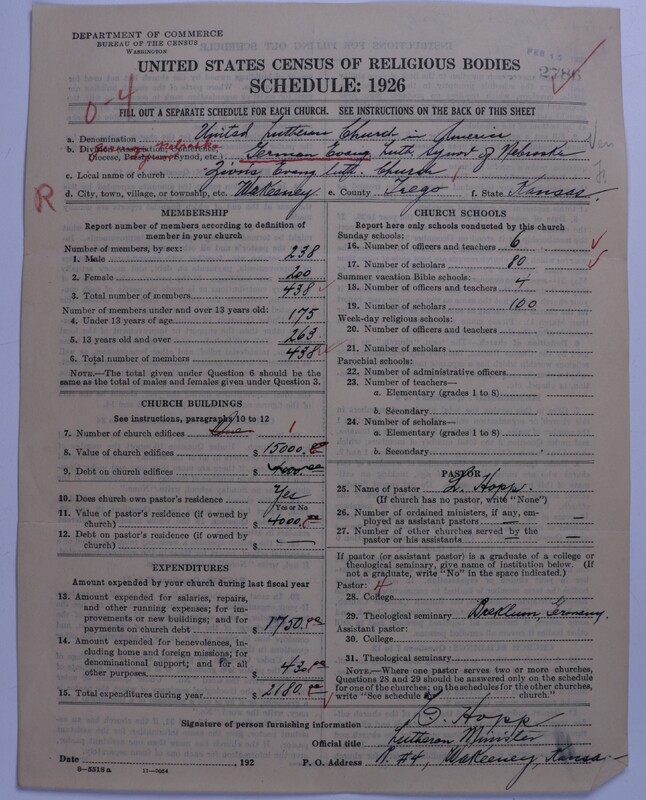 DEPARTMENT OF COMMERCE
BUREAU OF THE CENSUS
WASHINGTON
2786
UNITED STATES CENSUS OF RELIGIOUS BODIES
SCHEDULE: 1926
0-4
FILL OUT A SEPARATE SCHEDULE FOR EACH CHURCH. SEE INSTRUCTIONS ON THE BACK OF THIS SHEET
a. Denomination United Lutheran Church in America
b. Division (Association, Conference, Diocese, Presbytery, Synod, etc.) German Nebraska German Evang. Luth. Synod of Nebraska
c. Local name of church Zions Evang. Luth. Church
R
d. City, town, village, or township, etc. WaKeeney e. County Trego f. State Kansas.
MEMBERSHIP
Report number of members according to definition of member in your church
Number of members, by sex:
1. Male 238
2. Female 200
3. Total number of members 438
Number of members under and over 13 years old:
4. Under 13 years of age 175
5. 13 years old and over 263
6. Total number of members 438
NOTE.—The total given under Question 6 should be the same as the total of males and females given under Question 3.
CHURCH BUILDINGS
See instructions, paragraphs 10 to 12
7. Number of church edifices One 1
8. Value of church edifices $ 15000.00
9. Debt on church edifices $ 4000.00
10. Does church own pastor's residence Yes
Yes or No
11. Value of pastor's residence (if owned by church) $ 4000.00
12. Debt on pastor's residence (if owned by church) $ —
EXPENDITURES
Amount expended by your church during last fiscal year
13. Amount expended for salaries, repairs, and other running expenses; for improvements or new buildings; and for payments on church debt $ 1750.00
14. Amount expended for benevolences, including home and foreign missions; for denominational support; and for all other purposes $ 430.00
15. Total expenditures during year $ 2180.00
CHURCH SCHOOLS
Report here only schools conducted by this church
Sunday schools:
16. Number of officers and teachers 6
17. Number of scholars 80
Summer vacation Bible schools:
18. Number of officers and teachers 4
19. Number of scholars 100
Week-day religious schools:
20. Number of officers and teachers
21. Number of scholars
Parochial schools:
22. Number of administrative officers
23. Number of teachers—
a. Elementary (grades 1 to 8)
b. Secondary
24. Number of scholars—
a. Elementary (grades 1 to 8)
b. Secondary
PASTOR
25. Name of pastor Hopp
(If church has no pastor, write "None")
26. Number of ordained ministers, if any, employed as assistant pastors —
27. Number of other churches served by the pastor or his assistants —
If pastor (or assistant pastor) is a graduate of a college or theological seminary, give name of institution below. (If not a graduate, write "No" in the space indicated.)
Pastor: 4
28. College
29. Theological seminary Breklum, Germany.
Assistant pastor:
30. College
31. Theological seminary
NOTE.—Where one pastor serves two or more churches, Questions 28 and 29 should be answered only on the schedule for one of the churches; on the schedules for the other churches, write "See schedule church."
Signature of person furnishing information Hopp
Official title Lutheran Minister
Date , 192
P. O. Address R. #4, WaKeeney, Kansas
8—5518a 11—9664